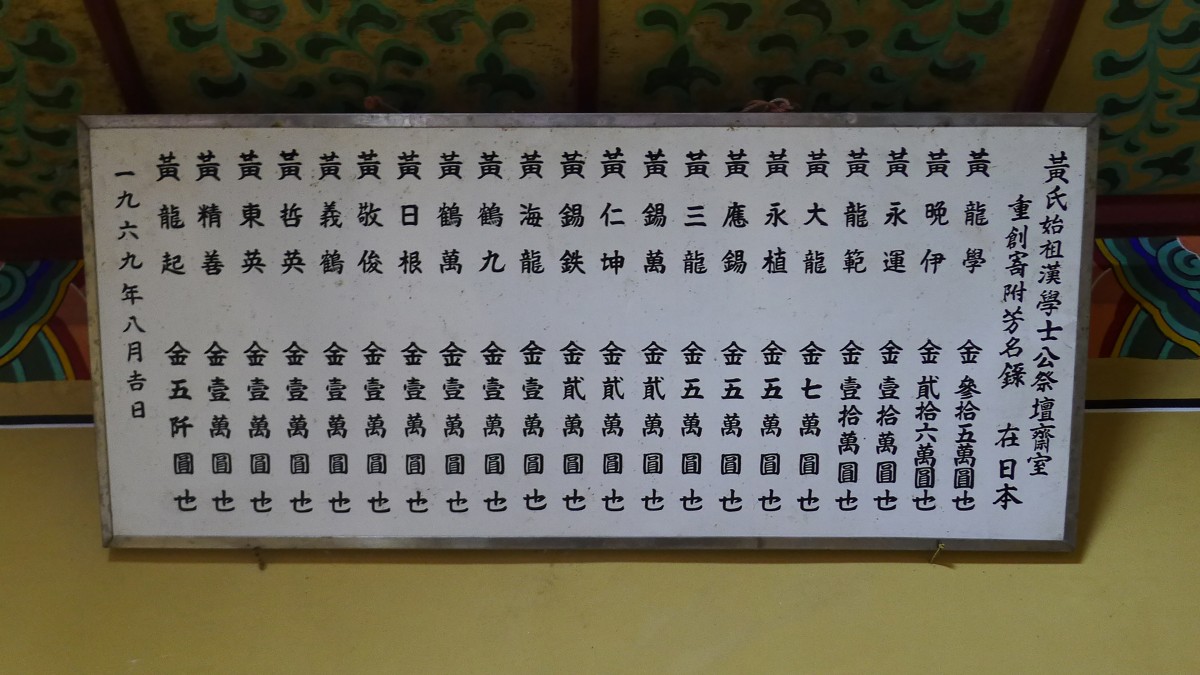 黃氏始祖漢學士公祭壇齋室
重創寄附芳名錄 在日本
黃龍學 金參拾五萬圓也
黃晚伊 金貳拾六萬圓也
黃永運 金壹拾萬圓也
黃龍範 金壹拾萬圓也
黃大龍 金七萬圓也
黃永植 金五萬圓也
黃應錫 金五萬圓也
黃三龍 金五萬圓也
黃錫萬 金貳萬圓也
黃仁坤 金貳萬圓也
黃錫鉄 金貳萬圓也
黃海龍 金壹萬圓也
黃鶴九 金壹萬圓也
黃鶴萬 金壹萬圓也
黃日根 金壹萬圓也
黃敬俊 金壹萬圓也
黃義鶴 金壹萬圓也
黃哲英 金壹萬圓也
黃東英 金壹萬圓也
黃精善 金壹萬圓也
黃龍起 金五阡圓也
一九六九年八月吉日